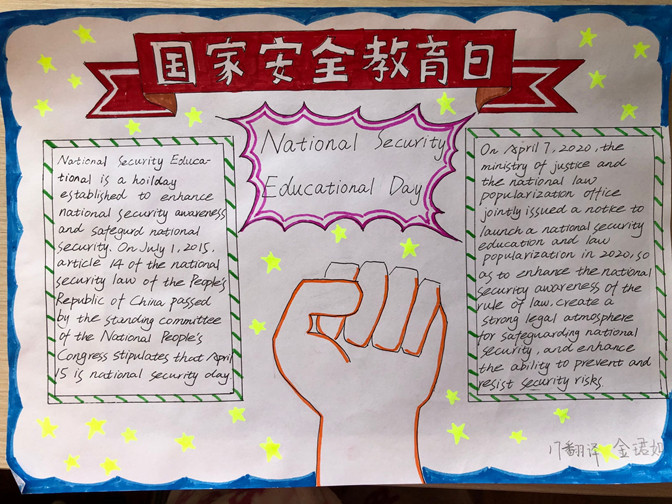 国家安全教育日
National Security
Educational Day
National Security Educa-
tional is a hoilday
established to enhance
national security awareness
and safegurd national
security. On July 1, 2015,
article 14 of the national
security law of the People's
Republic of China passed
by the standing committee
of the National People's
Congress stipulates that April
15 is national security day.
On April 7, 2020, the
ministry of justice and
the national law
popularization office
jointly issued a notice to
launch a national security
education and law
popularization in 2020, so
as to enhance the national
security awareness of the
rule of law. create a
strong legal atmosphere
for safeguarding national
security, and enhance
the ability to prevent and
resist security risks.
17翻译 金珺如